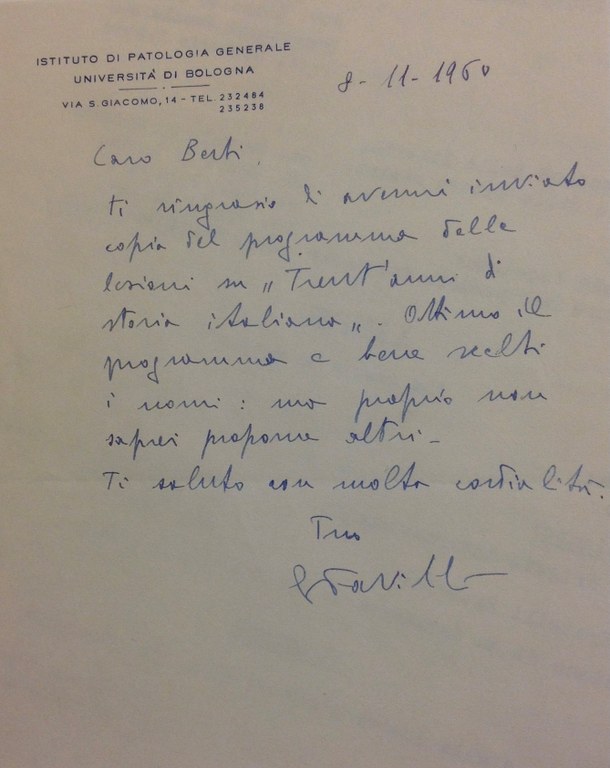 ISTITUTO DI PATOLOGIA GENERALE
UNIVERSITÀ DI BOLOGNA
VIA S. GIACOMO, 14 - TEL. 232484
235238
8-11-1960
Caro Berti,
ti ringrazio di avermi inviato
copia del programma delle
lezioni su „Trent'anni di
storia italiana„. Ottimo il
programma e bene scelti
i nomi: ma proprio non
saprei proporne altri -
Ti saluto con molta cordialità.
Tuo
GFavilli